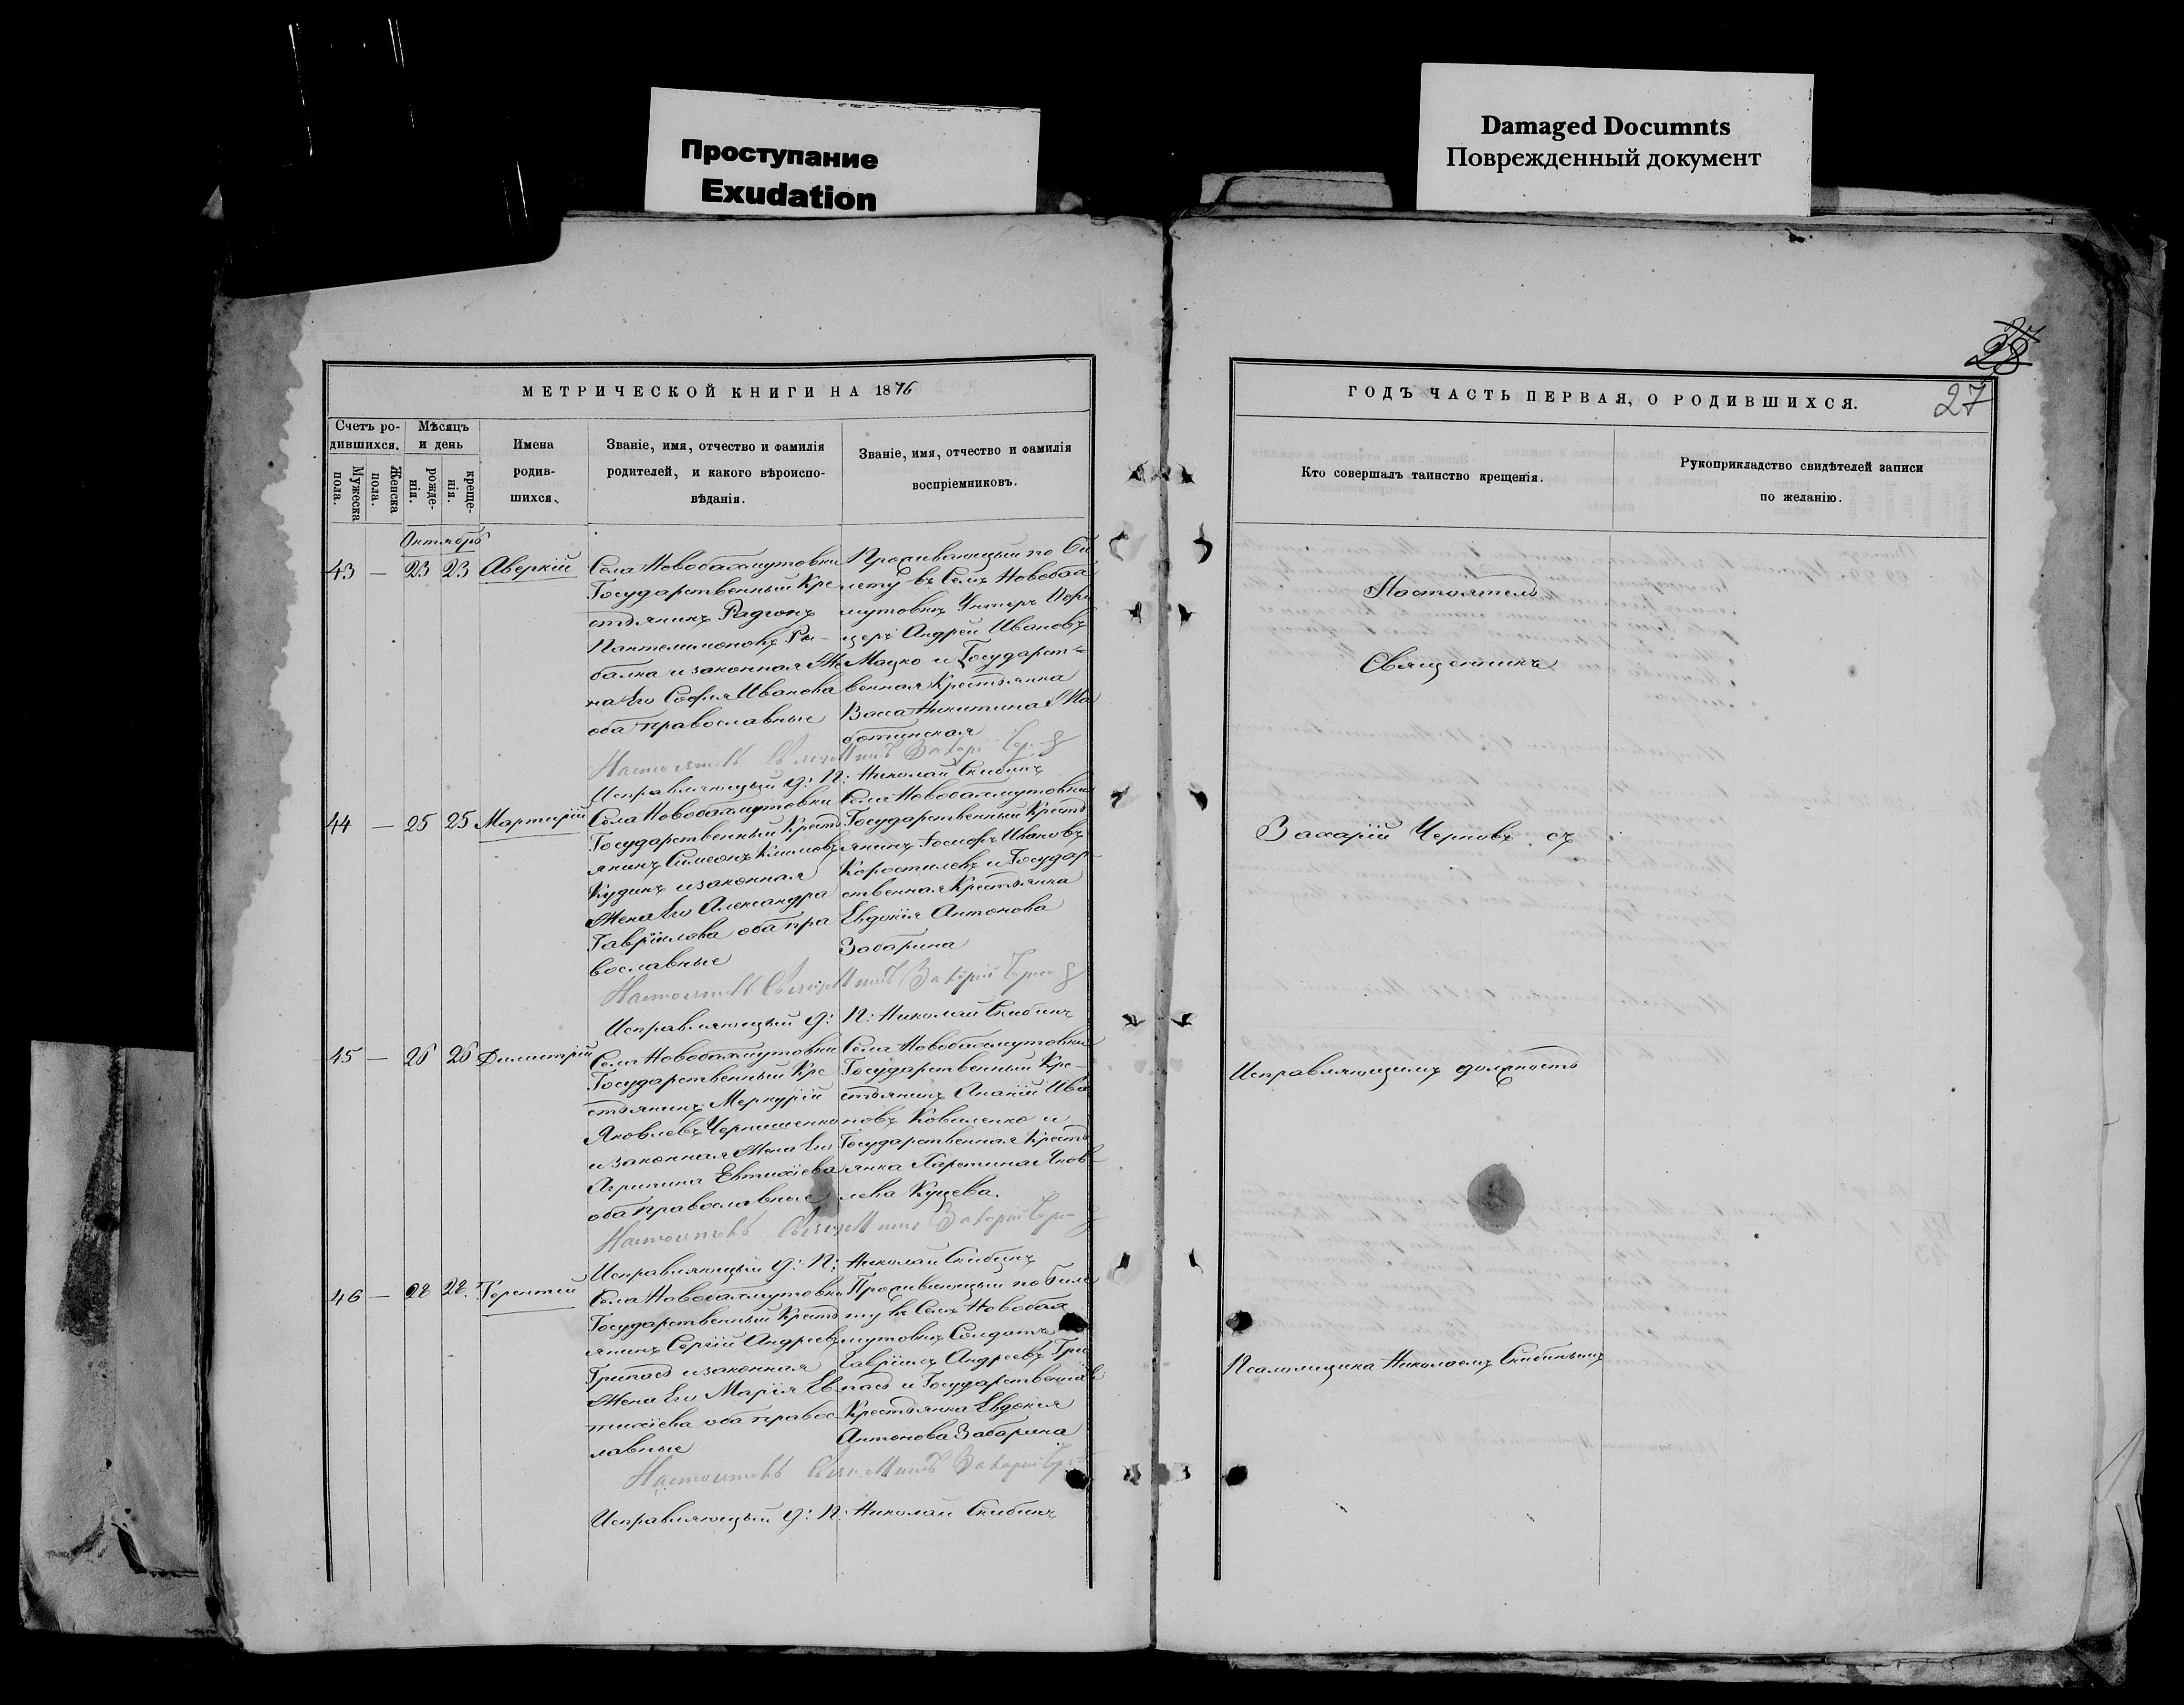 Проступание
Exudation
Damaged Documnts
Поврежденный документ
28
27
МЕТРИЧЕСКОЙ КНИГИ НА 1876
Счетъ ро-
дившихся.
Мужеска
пола.
Женска
пола.
Мѣсяцъ
и день
рожде-
нія.
креще-
нія.
Имена
родив-
шихся.
Званіе, имя, отчество и фамилія
родителей, и какого вѣроиспо-
вѣданія.
Званіе, имя, отчество и фамилія
воспріемниковъ.
Октябрь
43 — 23 23 Аверкій
Села Новобахмутовки
Государственный Кре
стьянинъ Радіонъ
Пантелимоновъ Ры-
балка и законная Же
на Его Софія Иванова
оба православные
Проживающый по Би
лету въ Селѣ Новобах
мутовкѣ Унтеръ Офи
церъ Андрей Ивановъ
Мацко и Государст-
венная Крестьянка
Васса Никитина
Настоятель Священникъ Захарій
Исправляющый д: П: Николай Скибинъ
44 — 25 25 Мартирій
Села Новобахмутовки
Государственный Кресть
янинъ Симеонъ Климовъ
Кудинъ и законная
Жена Его Александра
Гавріилова оба пра
вославные
Села Новобахмутовки
Государственный Кресть
янинъ Іосифъ Ивановъ
Коростилевъ и Государ-
ственная Крестьянка
Евдокія Антонова
Забарина
Настоятель Священникъ Захарій
Исправляющый д: П: Николай Скибинъ
45 — 26 26 Димитрій
Села Новобахмутовки
Государственный Кре
стьянинъ Меркурій
Яковлевъ Чернишенко
и законная Жена Его
Агрипина Евтихіева
оба православные
Села Новобахмутовки
Государственный Кре-
стьянинъ Ананій Ива
новъ Коваленко и
Государственная Кресть
янка Харетина Яков-
лева Куцева.
Настоятель Священникъ Захарій
Исправляющый д: П: Николай Скибинъ
46 — 28 28. Терентій
Села Новобахмутовки
Государственный Кресть
янинъ Сергій Андреевъ
Трипасъ и законная
Жена Его Марія Ев
тихіева оба правос-
лавные
Проживающый по Биле
ту въ Селѣ Новобах
мутовкѣ Солдатъ
Гавріилъ Андреевъ Три
пасъ и Государственная
Крестьянка Евдокія
Антонова Забарина
Настоятель Священникъ Захарій
Исправляющый д: П: Николай Скибинъ
ГОДЪ ЧАСТЬ ПЕРВАЯ, О РОДИВШИХСЯ.
Кто совершалъ таинство крещенія.
Рукоприкладство свидѣтелей записи
по желанію.
Настоятель
Священникъ
Захарій Черновъ съ
Исправляющимъ должность
Псаломщика Николаемъ Скибинымъ